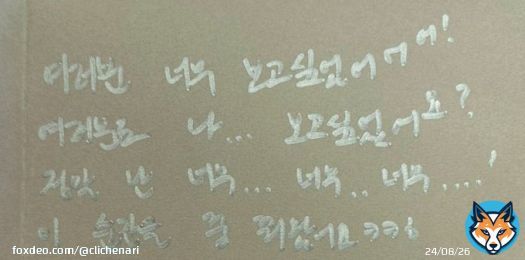 여러분 너무 보고싶었어어어!
여러분도 나... 보고싶었어요?
정말 난 너무... 너무.. 너무....!
이 순간을 꿈 ㅋㅋㅋ
foxdeo.com/@clichenari
24/08/26